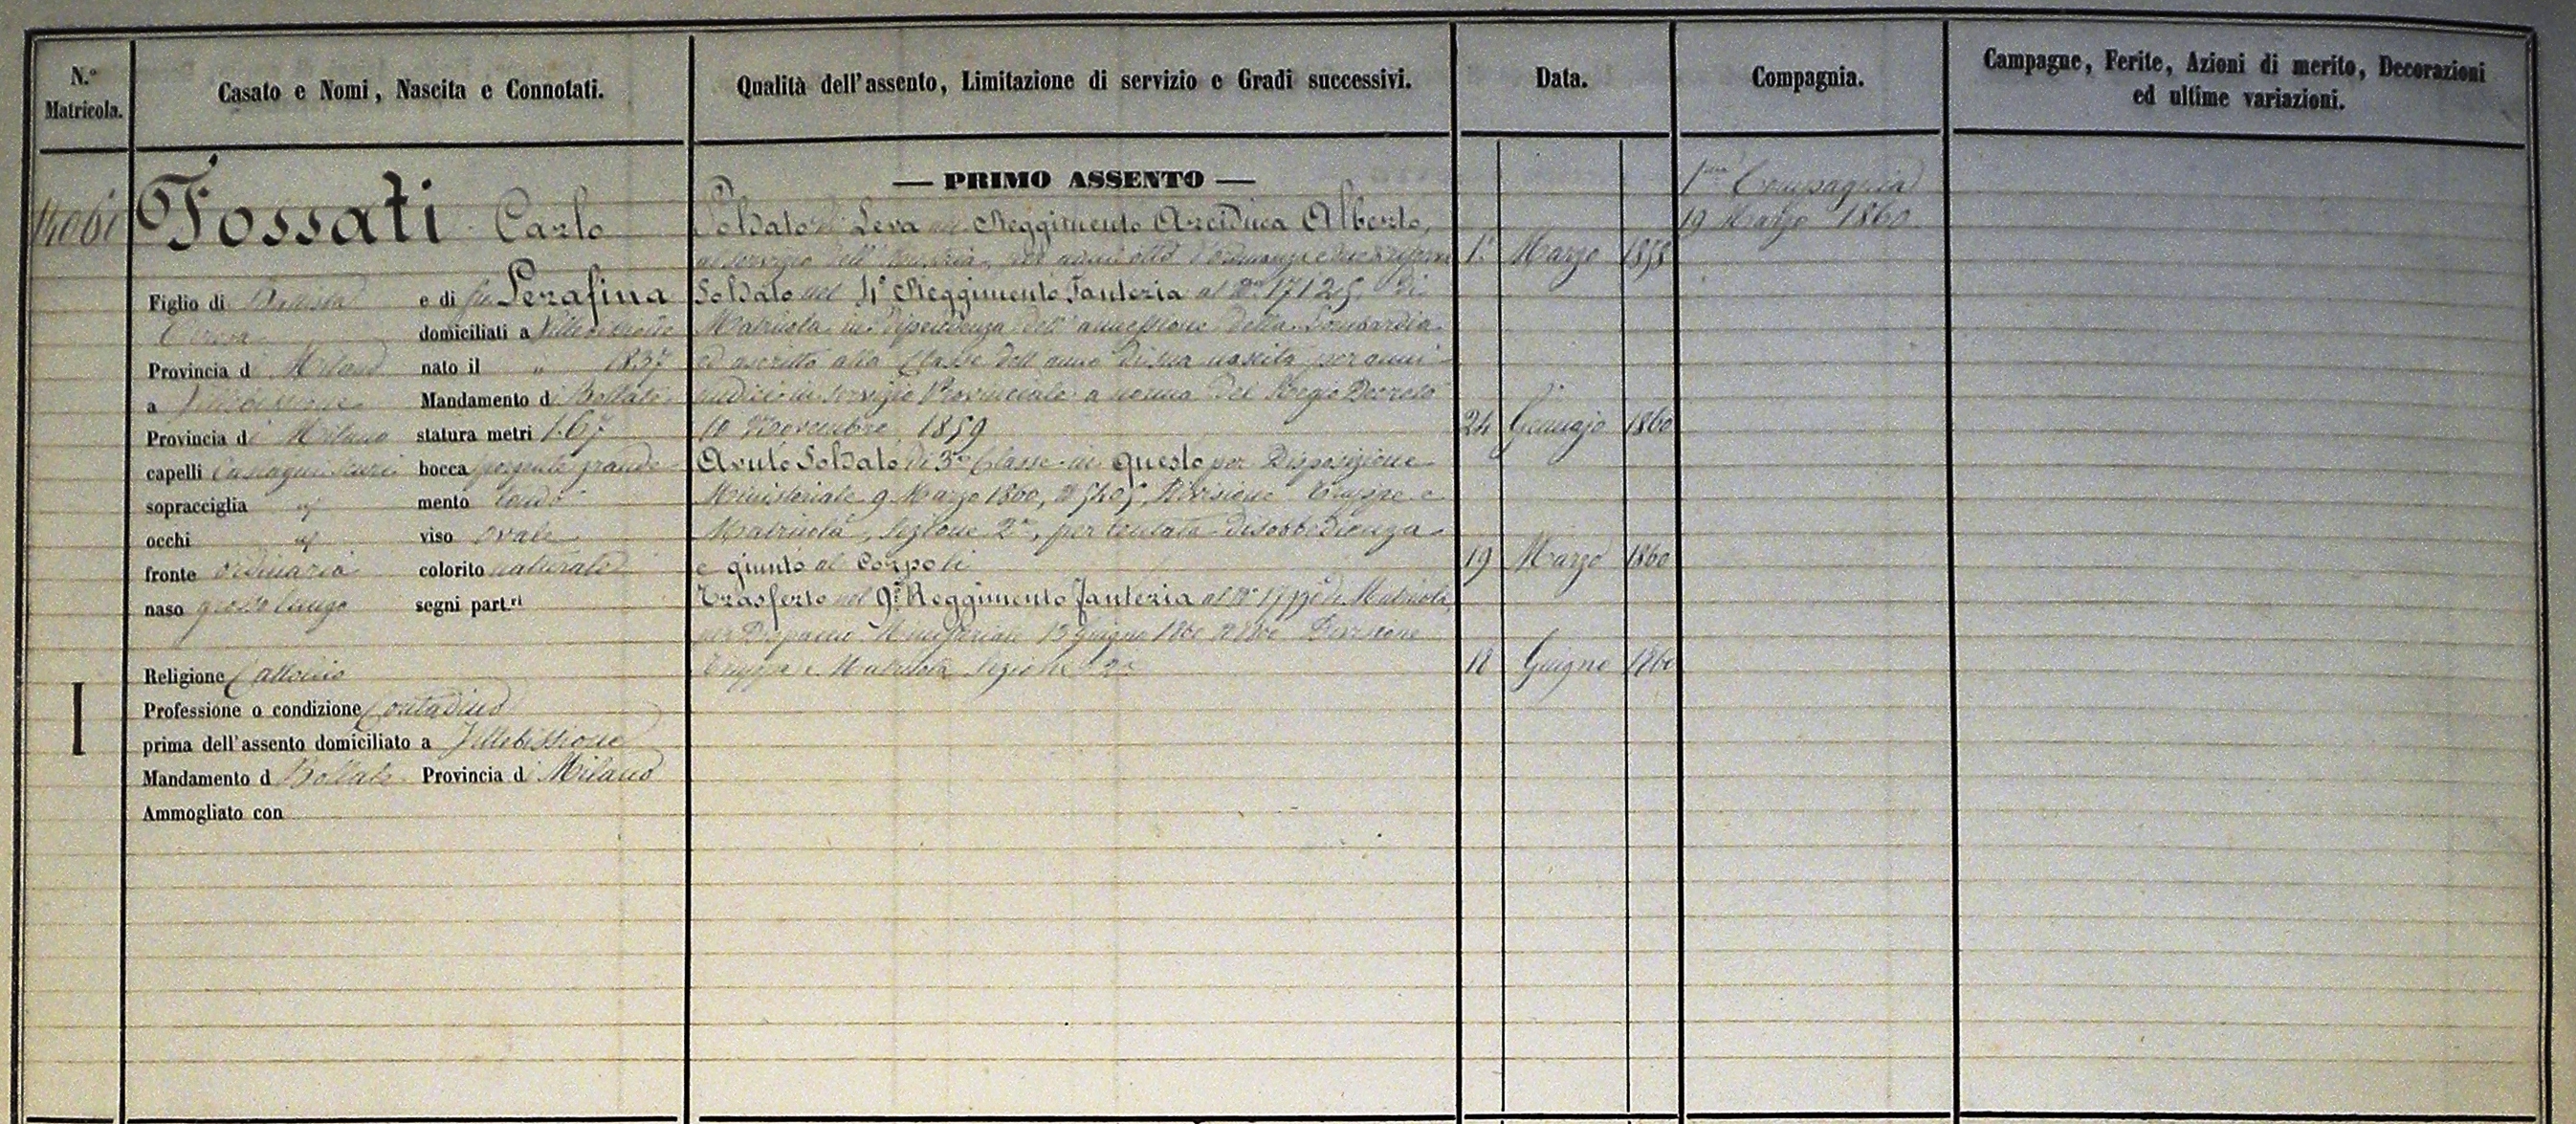 N.° Matricola.
Casato e Nomi, Nascita e Connotati.
Qualità dell'assento, Limitazione di servizio e Gradi successivi.
Data.
Compagnia.
Campagne, Ferite, Azioni di merito, Decorazioni
ed ultime variazioni.
Fossati Carlo
Figlio di Battista e di fu Serafina
domiciliati a
Provincia di Milano nato il " 1837
a Mandamento di Bollate
Provincia di Milano statura metri 1.67
capelli castagni scuri bocca sporgente grande
sopracciglia id mento tondo
occhi id viso ovale
fronte ordinaria colorito naturale
naso grosso lungo segni part.ri
Religione Cattolica
Professione o condizione Contadino
prima dell'assento domiciliato a
Mandamento d Bollate Provincia di Milano
Ammogliato con
I
— PRIMO ASSENTO —
Soldato di Leva nel Reggimento Arciduca Alberto,
al servizio dell'Austria, per anni otto d'ordinanza e due di riserva 1° Marzo 1858
Soldato nel 4° Reggimento Fanteria al N° 17125 di
Matricola in dipendenza dell'annessione della Lombardia
ed ascritto alla Classe dell'anno di sua nascita per anni
undici in servizio Provinciale a norma del Regio Decreto
10 Novembre 1859 24 Gennajo 1860
Avuto Soldato di 3a Classe in questo per Disposizione
Ministeriale 9 Marzo 1860, N 5405, Divisione Truppe e
Matricola, Sezione 2a, per tentata disobbedienza
e giunto al Corpo li 19 Marzo 1860
Trasferto nel 9° Reggimento Fanteria al N° di Matricola,
per Dispaccio Ministeriale Giugno 1860 Divisione
Truppa e Matricola Sezione 2a 18 Giugno 1860
1ma Compagnia
19 Marzo 1860